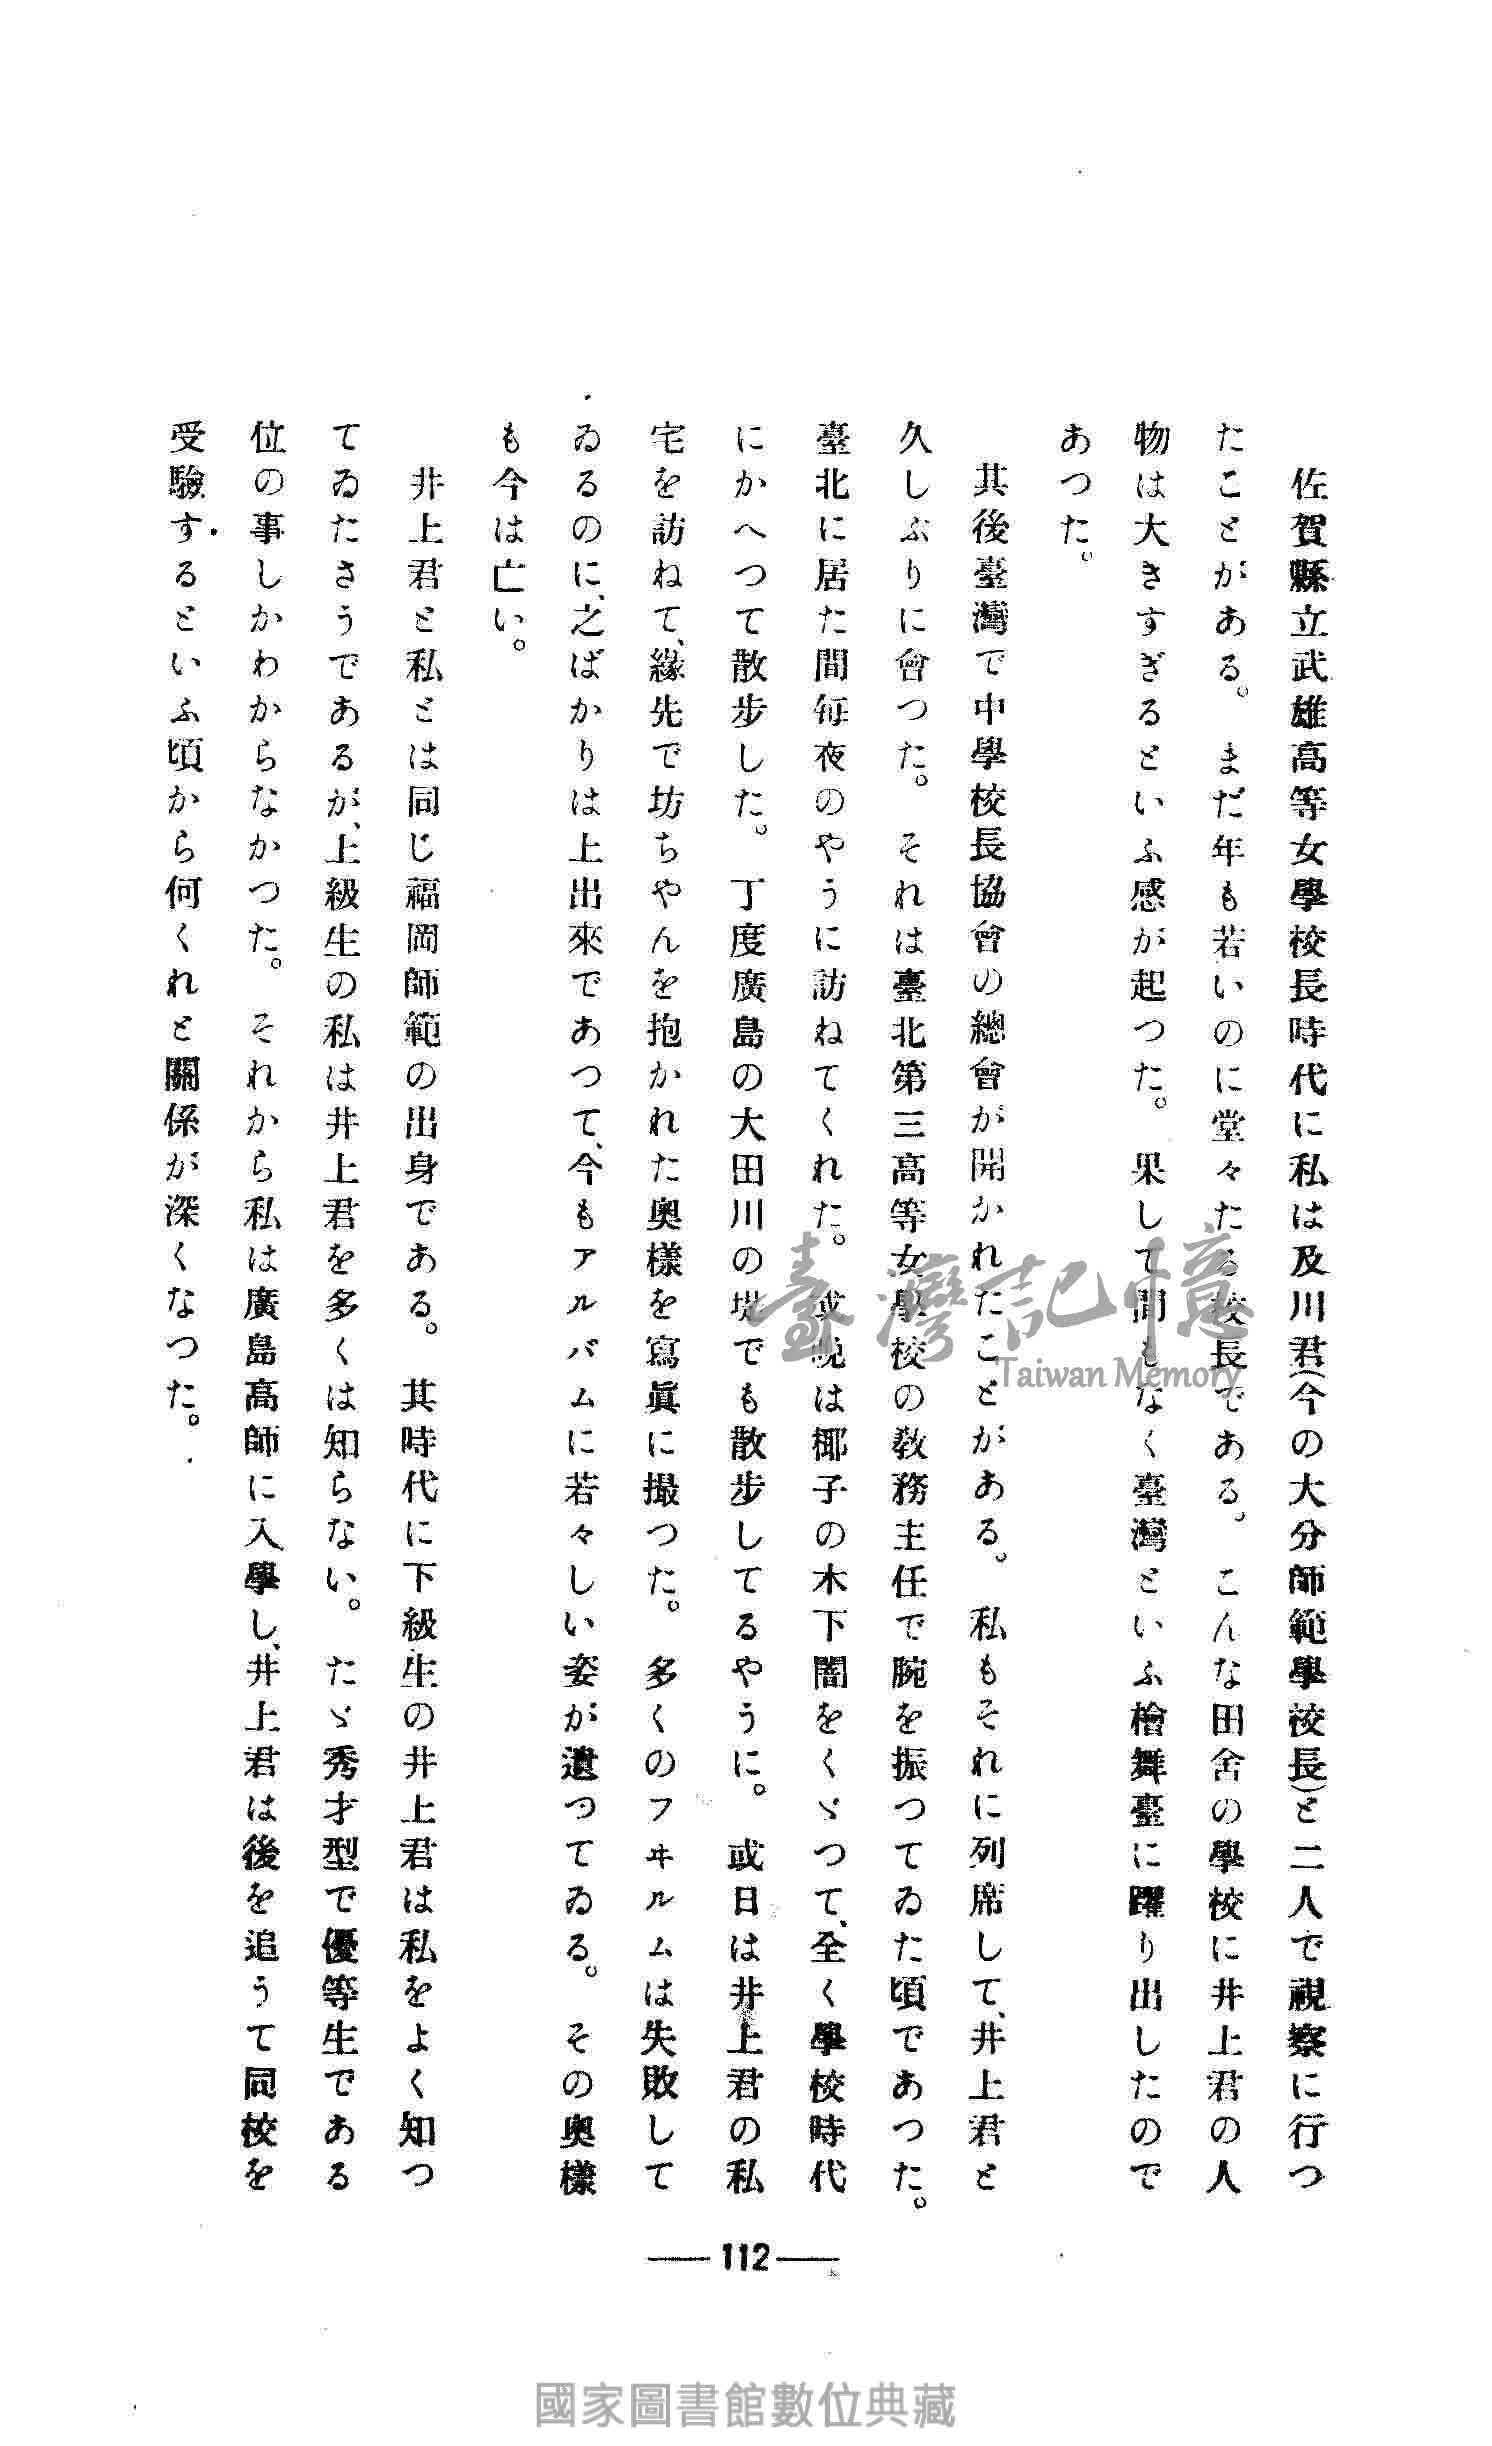 佐賀縣立武雄高等女學校長時代に私は及川君(今の大分師範學校長)と二人で視察に行つ
たことがある。まだ年も若いのに堂々たる校長である。こんな田舍の學校に井上君の人
物は大きすぎるといふ感が起つた。果して間もなく臺灣といふ檜舞臺に躍り出したので
あつた。
其後臺灣で中學校長協會の總會が開かれたことがある。私もそれに列席して、井上君と
久しぶりに會つた。それは臺北第三高等女學校の敎務主任で腕を振つてゐた頃であつた。
臺北に居た間每夜のやうに訪ねてくれた。或晩は椰子の木下闇をくゞつて、全く學校時代
にかへつて散步した。丁度廣島の大田川の堤でも散步してるやうに。或日は井上君の私
宅を訪ねて、緣先で坊ちやんを抱かれた奧樣を寫眞に撮つた。多くのフヰルムは失敗して
ゐるのに、之ばかりは上出來であつて、今もアルバムに若々しい姿が遺つてゐる。その奧樣
も今は亡い。
井上君と私とは同じ福岡師範の出身である。其時代に下級生の井上君は私をよく知つ
てゐたさうであるが、上級生の私は井上君を多くは知らない。たゞ秀才型で優等生である
位の事しかわからなかつた。それから私は廣島高師に入學し、井上君は後を追うて同校を
受驗するといふ頃から何くれと關係が深くなつた。
112
臺灣記憶
Taiwan Memory
國家圖書館數位典藏